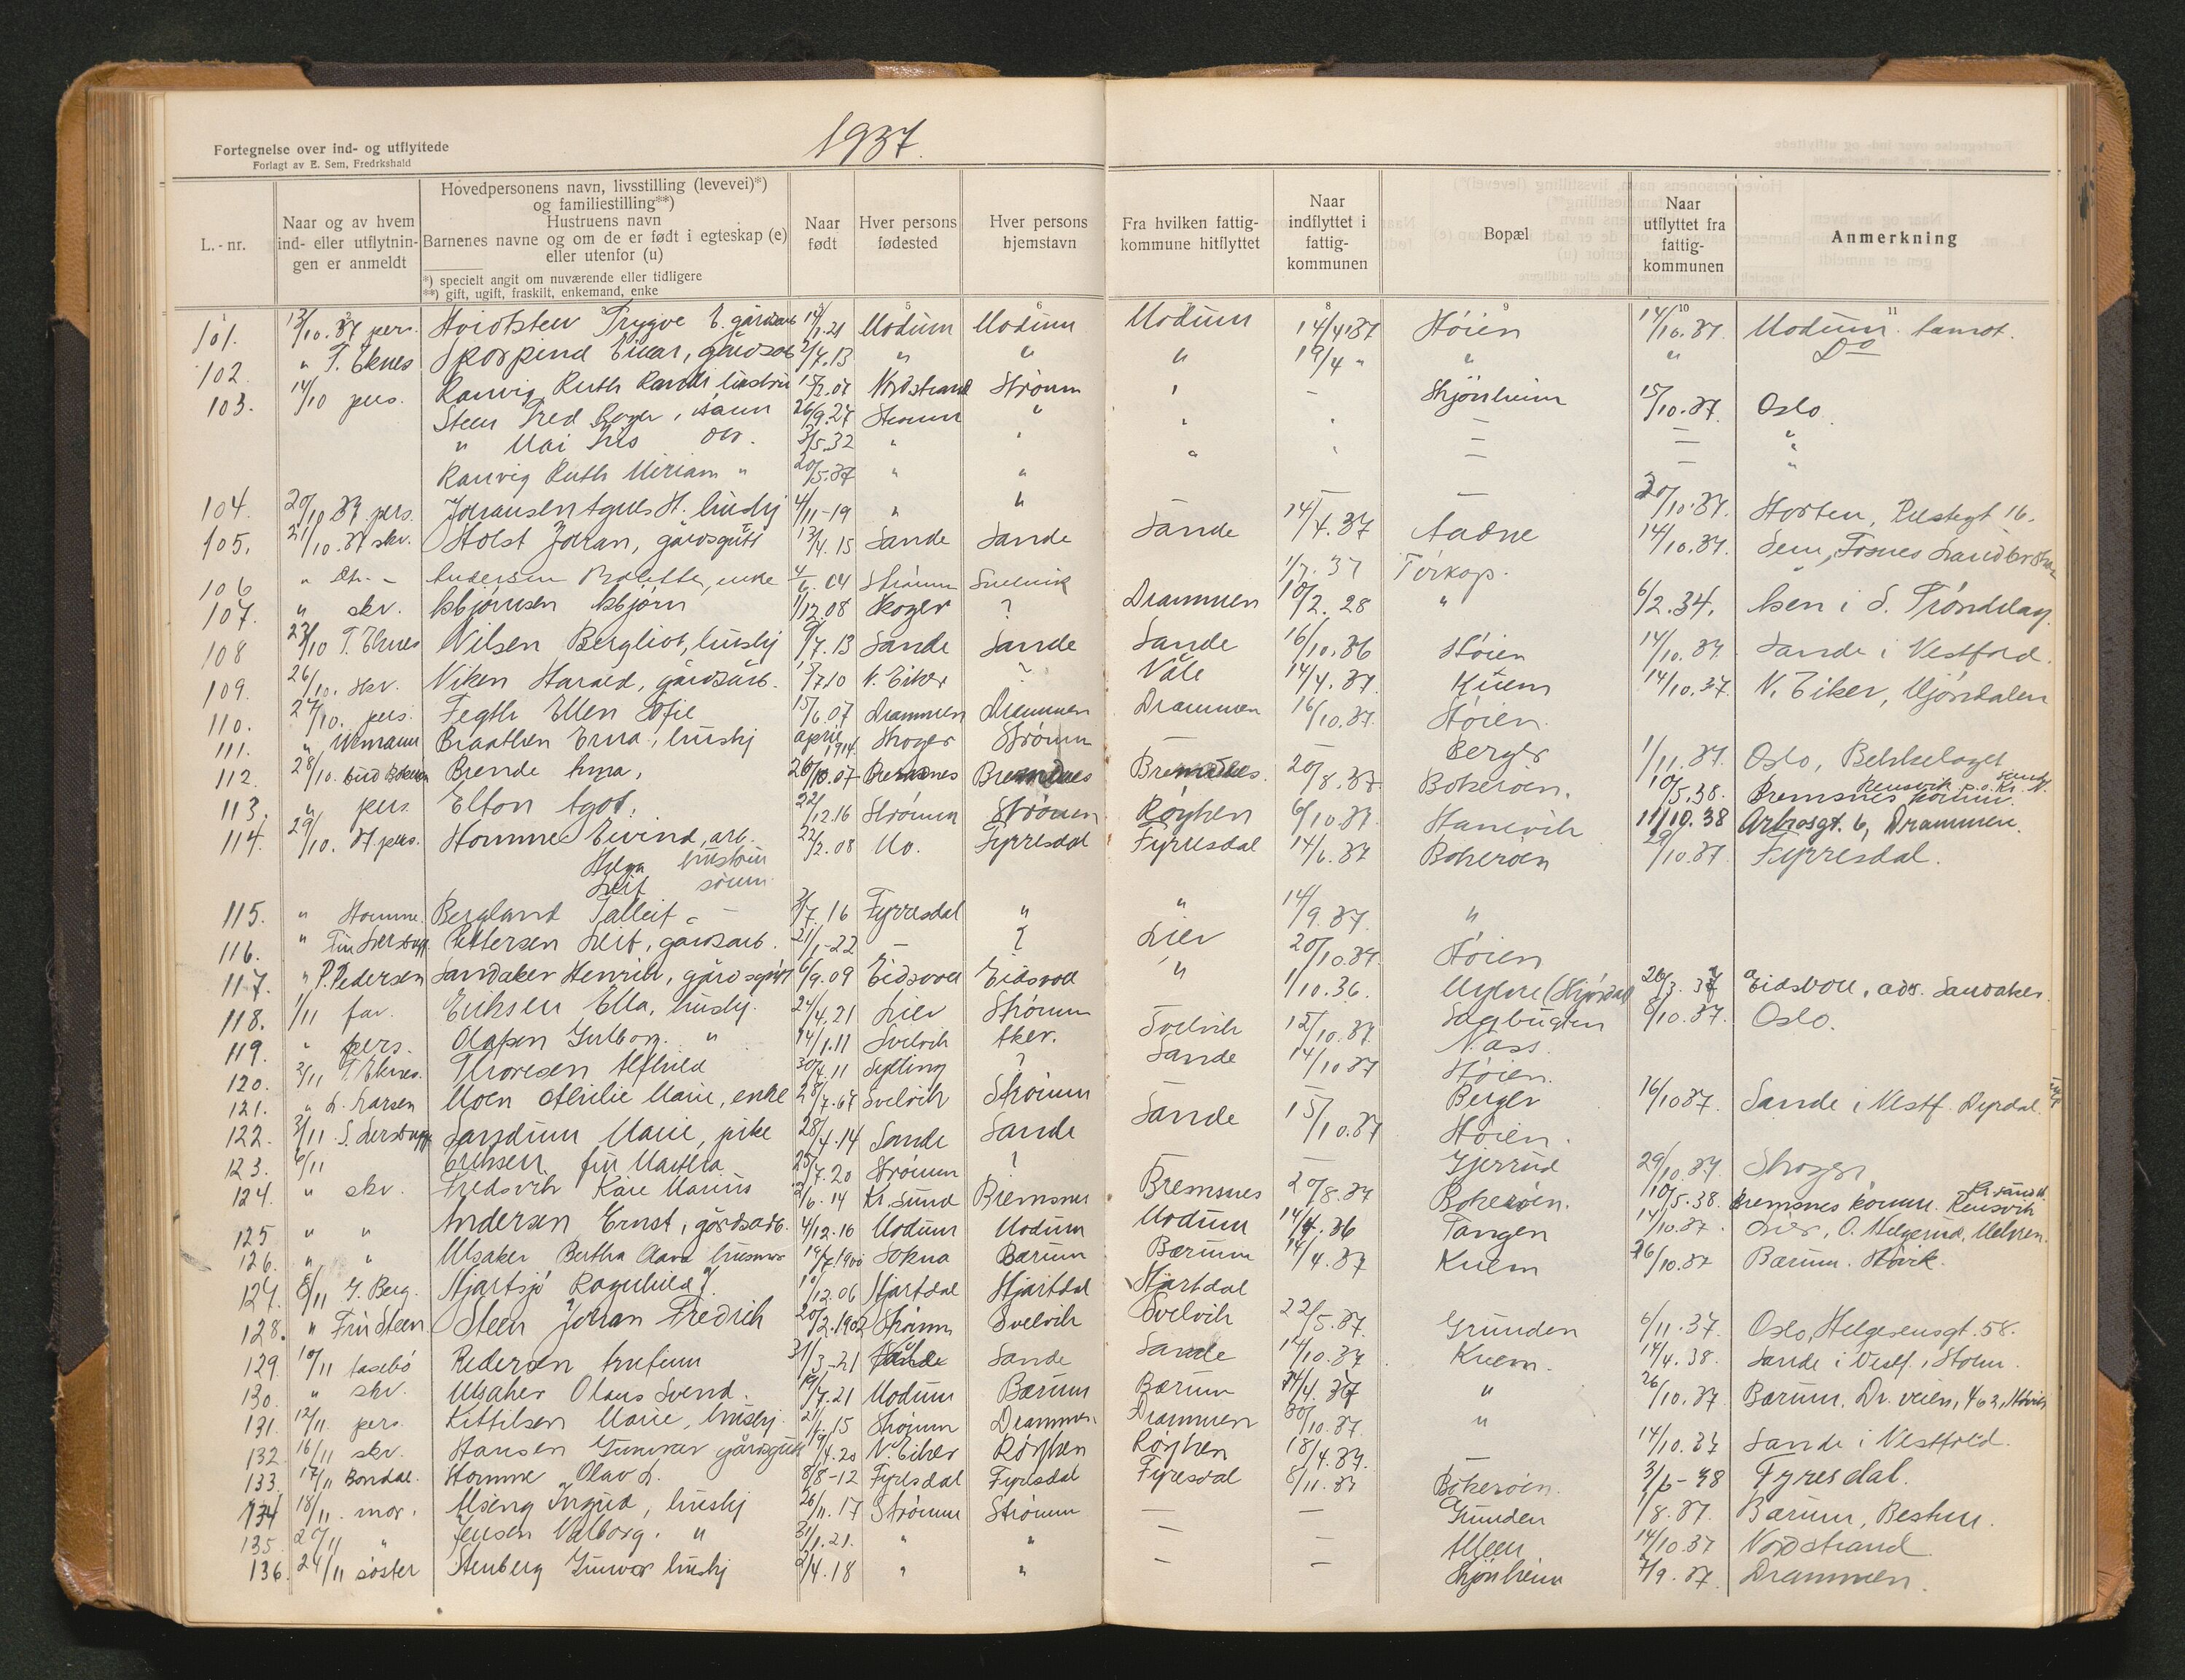 Fortegnelse over ind- og utflyttede
Forlagt av E. Sem, Fredrkshald
1937.
L.-nr.
Naar og av hvem ind- eller utflytningen er anmeldt
Hovedpersonens navn, livsstilling (levevei)*)
og familiestilling**)
Hustruens navn
Barnenes navne og om de er født i egteskap (e)
eller utenfor (u)
*) specielt angit om nuværende eller tidligere
**) gift, ugift, fraskilt, enkemand, enke
Naar født
Hver persons fødested
Hver persons hjemstavn
Fra hvilken fattigkommune hitflyttet
Naar indflyttet i fattigkommunen
Bopæl
Naar utflyttet fra fattigkommunen
Anmerkning
101. 13/10.37 pers. Hvidsten Trygve E. gårdsarb 14/1.21 Modum Modum Modum 14/4.37 Høien 14/10.37 Modum
102. " T. Eknes Einar, gårdsarb 2/7.13 " " " 19/4 " " " Do
103. 14/10 pers. Ranvig Ruth Randi hustru 15/2.07 Nordstrand Strømm " – Skjønheim 15/10.37 Oslo
Steen Fred Roger, sønn 26/9.27 Strømm " " " – – "
" Mai Iris dtr. 3/5.32 " " " " – – "
Ranvig Ruth Miriam " 20/5.37 " "
104. 20/10 37 pers. Johansen Agnes H. hushj 4/11-19 " " – – 20/10.37. Horten, 16.
105. 21/10.37 skr. Holst Johan, gårdsgutt 13/4.15 Sande Sande Sande 14/4.37 Aadne 14/10.37. Sem,
106 " Andersen enke 4/6.04 Strømm Svelvik 1/7.37 Tørkop.
107. " skr. Asbjørnsen Asbjørn 1/12.08 Skoger ? Drammen 10/2.28 " 6/2.34. Åsen i S. Trøndelag.
108 23/10 T. Eknes Nilsen Bergliot, hushj 9/7.13 Sande Sande Sande 16/10.36 Høien 14/10.37. Sande i Vestfold.
109. 26/10. skr. Viken Harald, gårdsarb. 7.10 N. Eiker ? Våle 14/4.37. Knem 14/10.37. N. Eiker, Mjøndalen
110. 27/10. pers. Fegth Ellen Sofie 15/6.07 Drammen Drammen Drammen 16/10.37. Høien.
111. " Braathen Erna, hushj april 1914 Skoger Strømm – – Berger 1/11.37. Oslo, Bekkelaget
112. 28/10. Brende Anna, 26/10.07 Bremsnes Bremsnes Bremsnes. 20/8.37. Bokerøen. 10/5.38. Bremsnes komm. Rensvik p.o. Kr. sund N.
113. " pers. Elton Agot. 22/12.16 Strømm Strømm Røyken 6/10.37. Hanevik 11/10.38 gt. 6, Drammen.
114. 29/10.37 pers. Homme Eivind, arb. 22/2.08 Mo. Fyrresdal Fyrresdal 14/6.37 Bokerøen 29/10.37 Fyrresdal.
Helga hustru
Leif sønn
115. " Homme. Bergland Talleif – 3/7.16 Fyrresdal " " 14/9.37. "
116. " Pettersen Leif, gårdsarb. 21/1-22 – ? Lier 20/10.37. Høien
117. " P. Pedersen Sandaker Henrik, gårdsgutt 6/9.09 Eidsvoll Eidsvoll " 1/10.36. Myhre 26/3.37 Eidsvoll, adr. Sandaker.
118. 1/11 far. Eriksen Ella, hushj. 24/4.21 Lier Strømm – – Sagbugten 8/10.37. Oslo.
119. " pers. Olafsen Gulborg. " 14/1.11 Svelvik Aker. Svelvik 15/10.37. Næss.
120. 2/11 T. Eknes. Thoresen Alfhild 30/4.11 Sylling ? Sande 14/10 37 Høien.
121. " L. Larsen Moen Marie, enke 28/7.67 Svelvik Strømm – – Berger 16/10 37. Sande i Vestf. Dyrdal.
122. 3/11 Sandum Marie, pike 28/4.14 Sande Sande Sande 15/10.37 Høien.
123. 6/11 Eriksen Martha 25/7.20 Strømm ? – – Gjerrud 29/10.37. Skoger
124. " skr. Fredsvik Kåre Marius 2/6.14 Kr. Sund Bremsnes Bremsnes 20/8.37 Bokerøen. 10/5.38. Bremsnes komm. Rensvik Kr. sund
125 " " Andersen Ernst, gårdsarb. 4/12.10 Modum Modum Modum 14/4.36 Tangen 14/10.37. Lier, O. Helgerud,
126. " " Ulsaker Bertha Olava husmor 19/7.1900 Sokna Bærum Bærum 14/4.37 Knem 26/10.37 Bærum. Høvik.
127. 8/11 J. Berg. Hjartsjø Ragnhild J. 10/12.06 Hjartdal Hjartdal Hjartdal
128. " Fru Steen Steen Johan Fredrik 20/2.1902 Strømm Svelvik Svelvik 22/5.37. Grunden 6/11.37. Oslo, Helgesensgt. 58.
129. 10/11 Aasebø Pedersen Arnfinn 31/3-21 Sande Sande 14/10.37. Knem. 14/4.38. Sande i Vestf.,
130. " skr. Ulsaker Olaus Svend. 19/7.21 Modum Bærum Bærum 14/4.37 " 26/10.37 Bærum. Dr. veien, 462, Høvik
131. 12/11 pers. Kittilsen Marie, hushj. 15 Strømm Drammen Drammen 30/10.37. "
132. 16/11 skr. Hansen Gunnar gårdsgutt 9/4.20 N. Eiker Røyken Røyken 18/4.37. – 14/10.37 Sande i Vestfold.
133. 17/11 Bondal. Homme Olav L. 8/8-12 Fyresdal Fyresdal Fyresdal 8/11.37 Bokerøen. 3/6-38 Fyresdal.
134 18/11. mor. Alseng Ingrid, hushj 26/11.17 Strømm Strømm – – Grunden 1/8.37. Bærum, Bestum.
135. 20/11 " Jensen Valborg. " 31/1.21. " " – – Alleen 14/10.37 Nordstrand
136. 24/11 søster Stenberg Gunvor hushj 2/4.18 " " – – Skjønheim 7/9.37. Drammen.